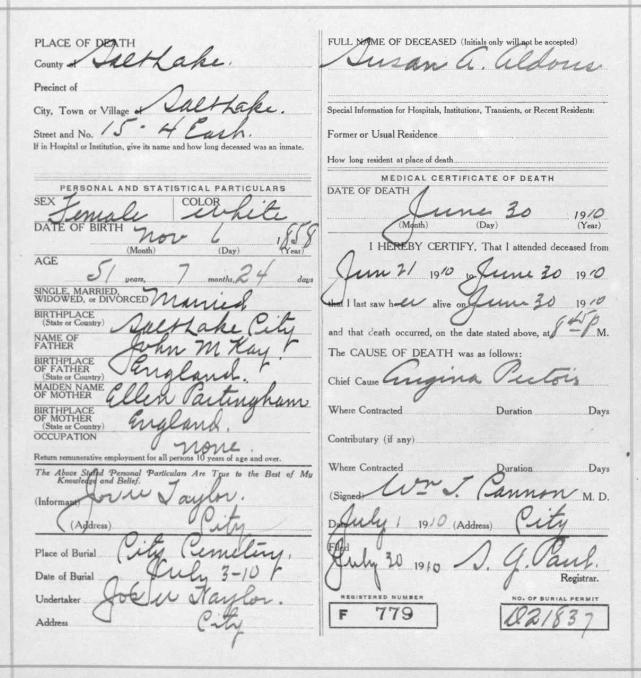 PLACE OF DEATH
County Salt Lake.
Precinct of
City, Town or Village Salt Lake.
Street and No. 15 - 4 East.
If in Hospital or Institution, give its name and how long deceased was an inmate.
PERSONAL AND STATISTICAL PARTICULARS
SEX Female COLOR White
DATE OF BIRTH Nov 6 1858
(Month) (Day) (Year)
AGE 51 years, 7 months, 24 days
SINGLE, MARRIED,
WIDOWED, or DIVORCED Married
BIRTHPLACE
(State or Country) Salt Lake City
NAME OF
FATHER John M Kay
BIRTHPLACE
OF FATHER
(State or Country) England.
MAIDEN NAME
OF MOTHER Ellen Partingham
BIRTHPLACE
OF MOTHER
(State or Country) England.
OCCUPATION none.
Return remunerative employment for all persons 10 years of age and over.
The Above Stated Personal Particulars Are True to the Best of My
Knowledge and Belief.
(Informant) Taylor.
(Address) City
Place of Burial City Cemetery.
Date of Burial July 3-10
Undertaker Taylor.
Address City
FULL NAME OF DECEASED (Initials only will not be accepted)
Susan A. Aldous
Special Information for Hospitals, Institutions, Transients, or Recent Residents:
Former or Usual Residence
How long resident at place of death
MEDICAL CERTIFICATE OF DEATH
DATE OF DEATH
June 30 1910
(Month) (Day) (Year)
I HEREBY CERTIFY, That I attended deceased from
Jun 21 1910 to June 30 1910
that I last saw her alive on June 30 1910
and that death occurred, on the date stated above, at 8 45 P M.
The CAUSE OF DEATH was as follows:
Chief Cause Angina Pectois
Where Contracted Duration Days
Contributary (if any)
Where Contracted Duration Days
(Signed) Wm T. Cannon M. D.
Date July 1 1910 (Address) City
Filed July 30 1910 S. G. Paul.
Registrar.
REGISTERED NUMBER
F 779
NO. OF BURIAL PERMIT
D21837